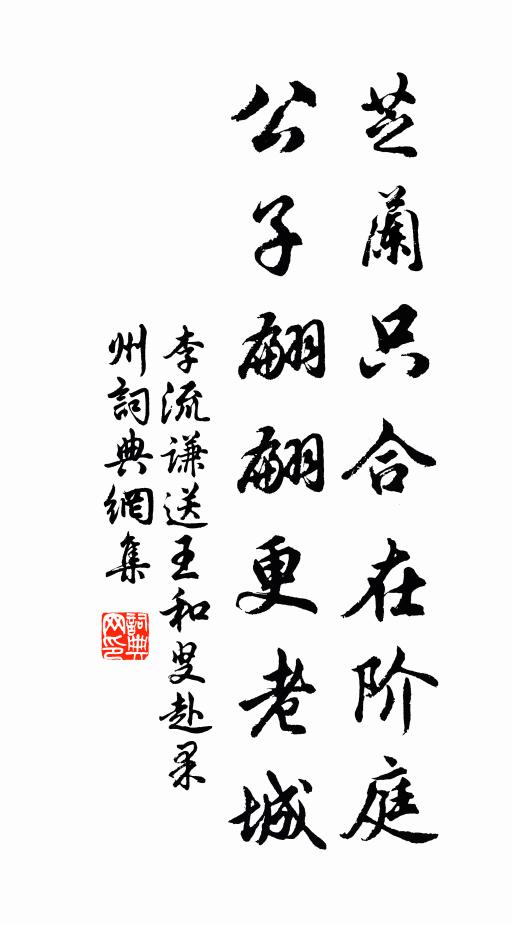 芝蘭只合在阶庭
公子翩翩更老城
李流谦送王和叟赴果
州詞典網集
詞典网印